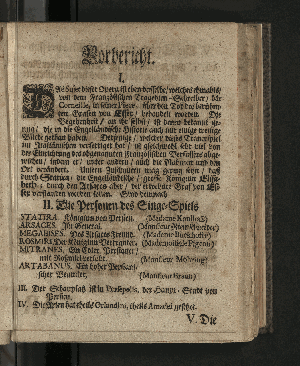 Vorbericht.
I.
DAs Sujet dieser Opera ist eben dasselbe, welches ehmahls
von dem Frantzösischen Tragedien-Schreiber, de
Corneille, in seiner Piece, über den Tod des berühm-
ten Grafen von Essex, behandelt worden. Die
Begebenheit, an ihr selbst, ist denen bekannt ge-
nug, die in die Engelländische Historie auch nur einige wenige
Blicke gethan haben. Derjenige, welcher dieses Drama
im Italiänischen verfertiget hat, ist gleichwohl sehr viel von
der Einrichtung des obgenannten Frantzösischen Verfassers abge-
wichen, indem er, unter andern, auch die Nahmen und den
Ort verändert. Unsern Zuschauern mag genug seyn, daß
durch Statira, die Engelländische, große Königinn Elisa-
beth, durch den Arsaces aber, der
verstanden werden sollen. Sind demnach:
II. Die Personen des Singe-Spiels
STATIRA. Königinn von Persien. (Madame Kayserinn)
ARSACES. Ihr General. (Monsieur
MEGABISES. Des Arsaces Freund. (Madame
ROSMIRI. Der Königinn Vertraute. (Mademoiselle
MITRANES. Ein hoher Persianer,
mit Rosmiri verlobt. (Monsieur Möhring)
ARTABANUS. Ein hoher Persiani-
scher Beamter. (Monsieur Braun)
III. Der Schauplatz ist in Persepolis, der Haupt-Stadt von
Persien.
IV. Die Arien hat theils Orlandini, theils Amadei gesetzet.
V. Die